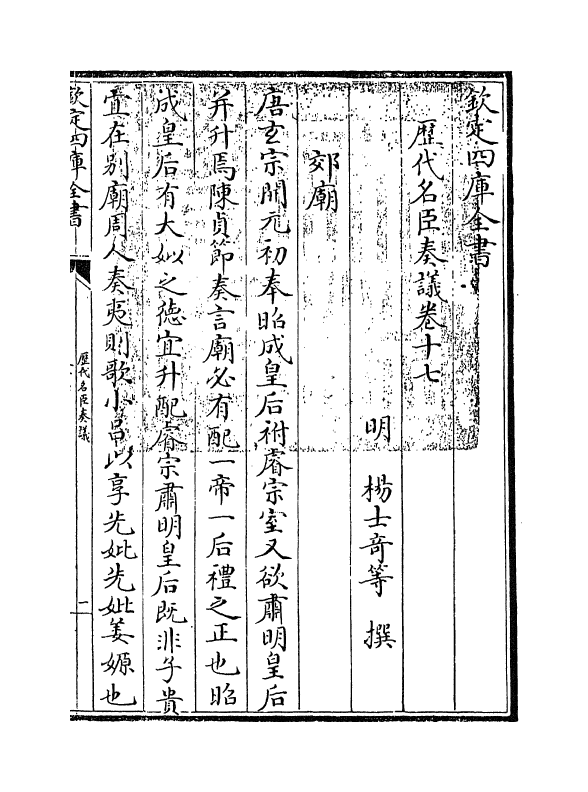 欽定四庫全書
歷代名臣奏議卷十七
明 楊士奇等 撰
郊廟
唐玄宗開元初奉昭成皇后祔睿宗室又欲肅明皇后
并升焉陳貞節奏言廟必有配一帝一后禮之正也昭
成皇后有大姒之德宜升配睿宗肅明皇后既非子貴
宜在別廟周人奏夷則歌小呂以享先妣先妣姜嫄也
欽定四庫全書
歷代名臣奏議
一